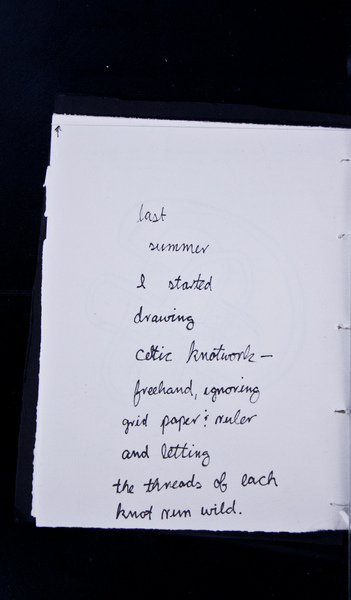 last
summer
I started
drawing
celtic knotwork —
freehand, ignoring
grid paper & ruler
and letting
the threads of each
knot run wild.